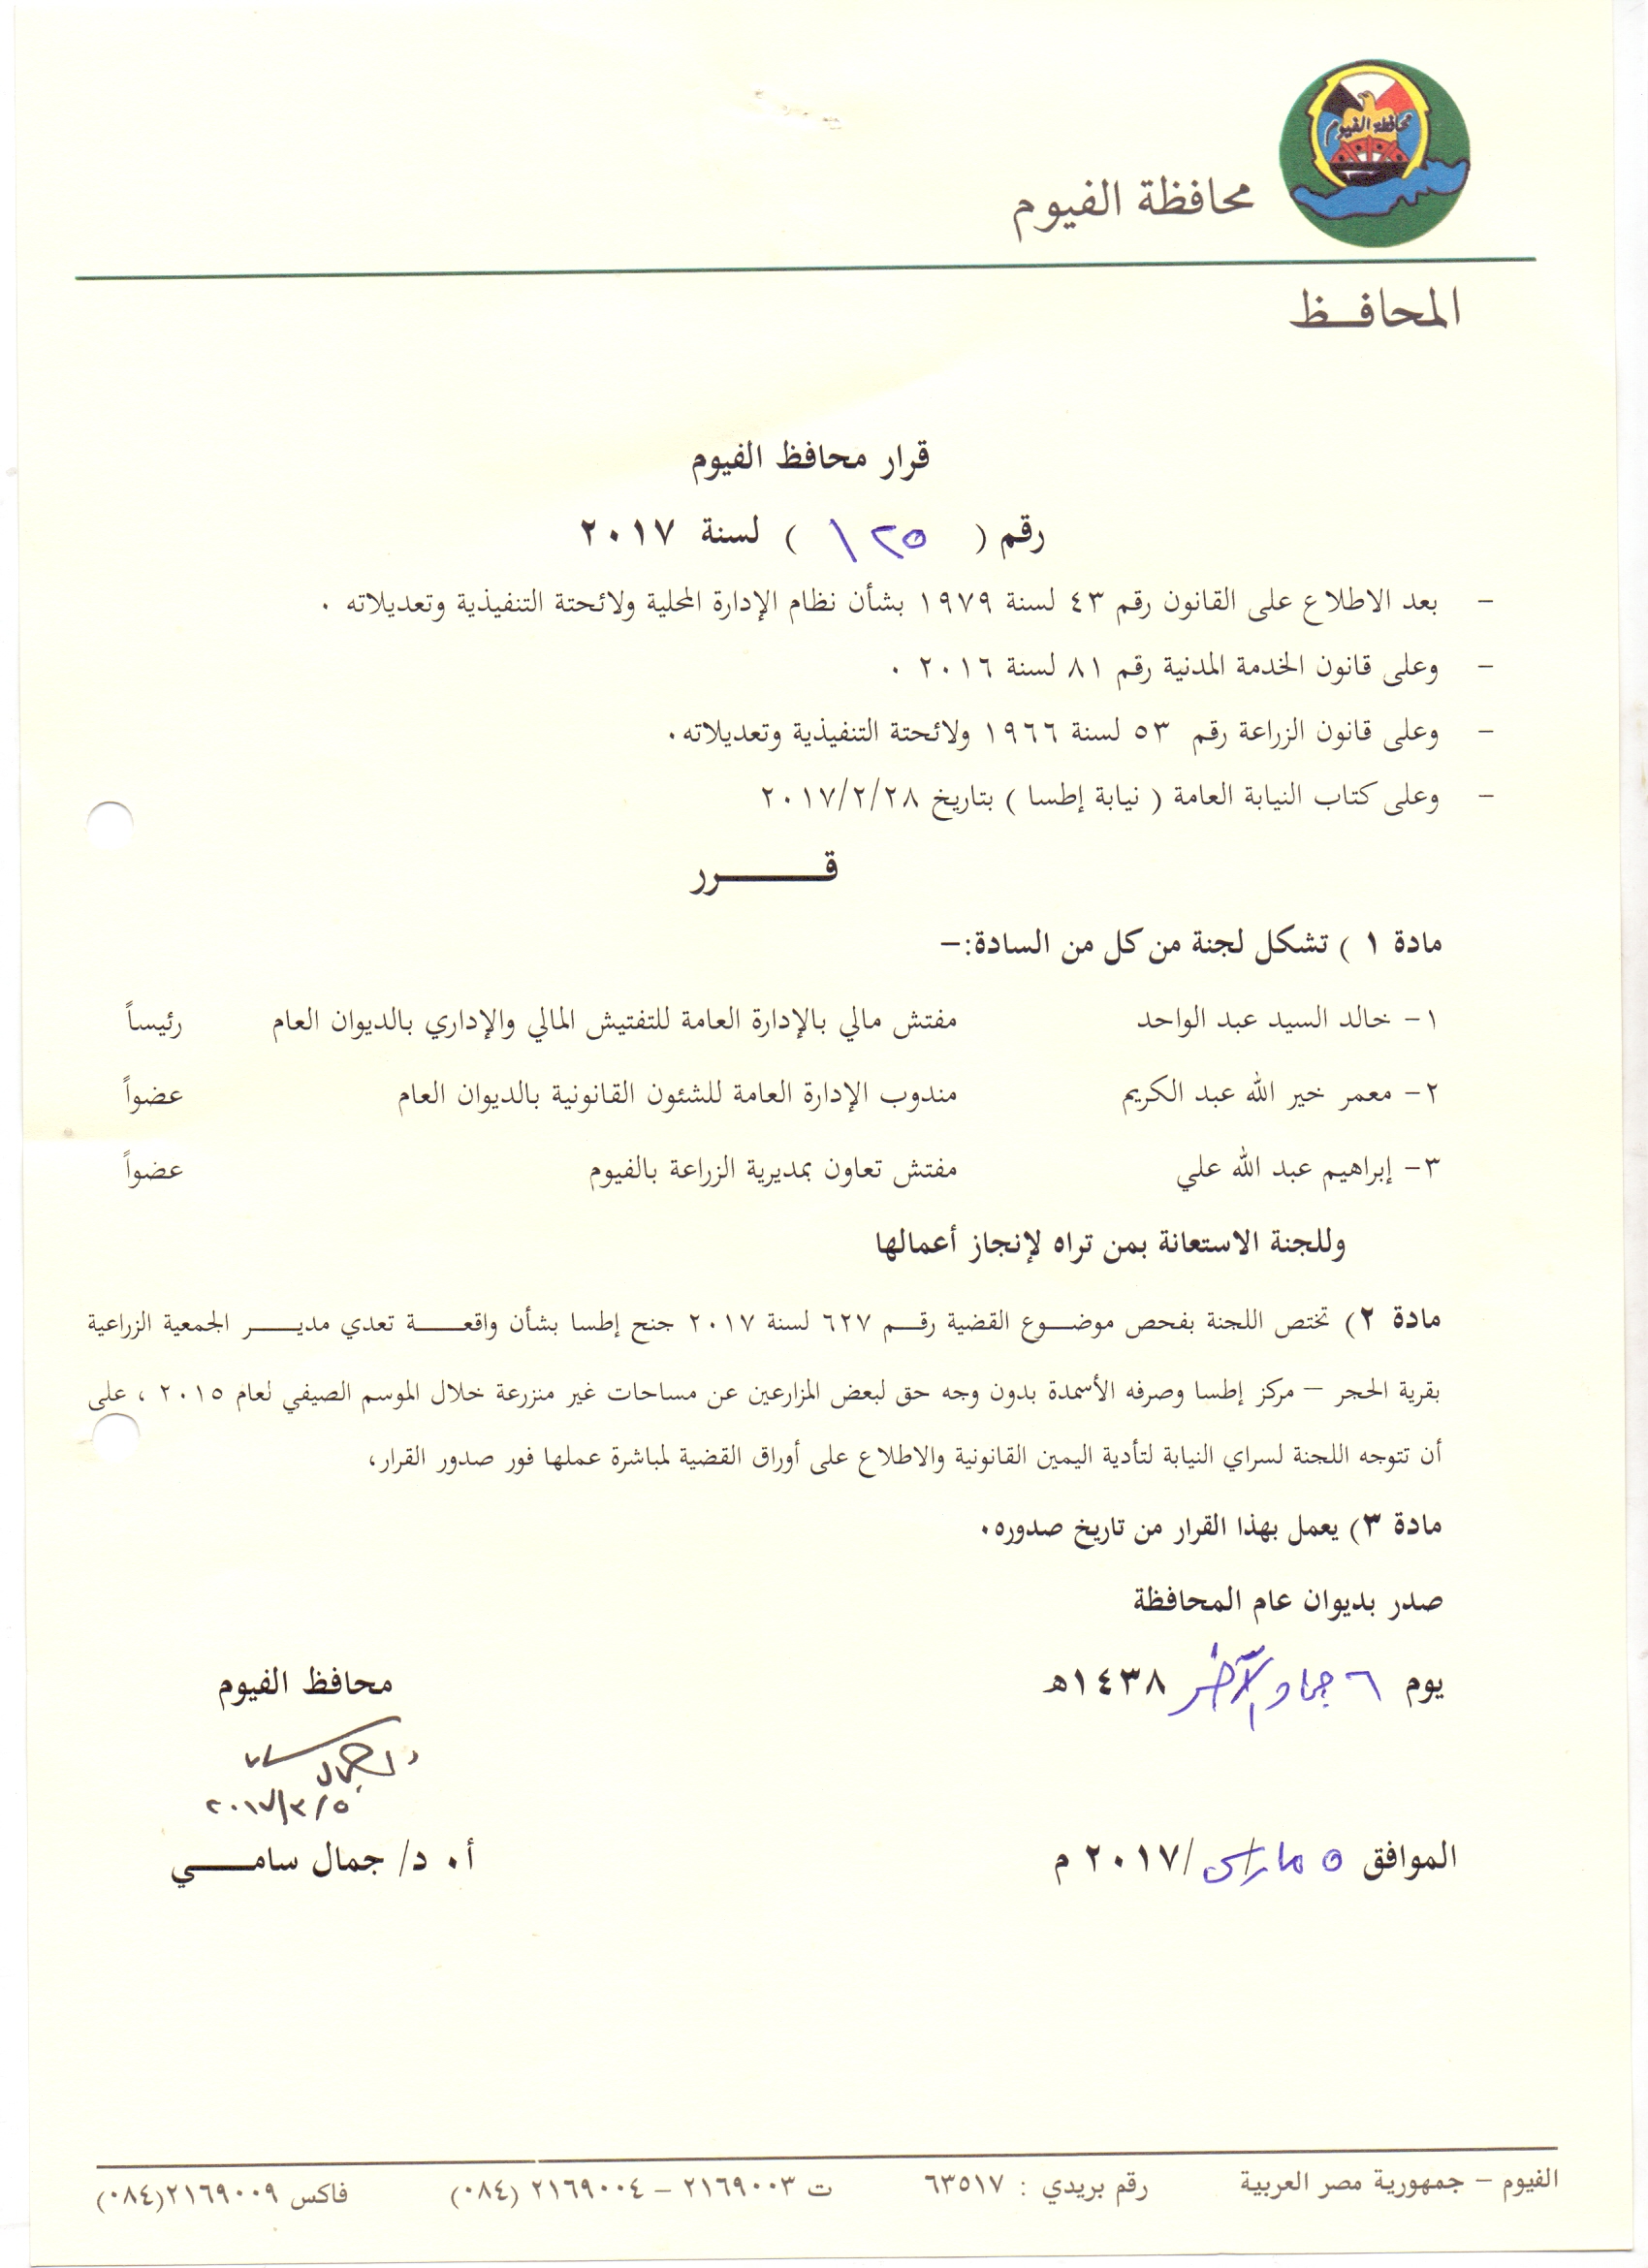 محافظة الفيوم
محافظة الفيوم
المحافـظ
قرار محافظ الفيوم
رقم ( ١٢٥ ) لسنة ٢٠١٧
- بعد الاطلاع على القانون رقم ٤٣ لسنة ١٩٧٩ بشأن نظام الإدارة المحلية ولائحتة التنفيذية وتعديلاته .
- وعلى قانون الخدمة المدنية رقم ٨١ لسنة ٢٠١٦ .
- وعلى قانون الزراعة رقم ٥٣ لسنة ١٩٦٦ ولائحتة التنفيذية وتعديلاته.
- وعلى كتاب النيابة العامة ( نيابة إطسا ) بتاريخ ٢٠١٧/٢/٢٨
قـــــرر
مادة ١ ) تشكل لجنة من كل من السادة:-
١- خالد السيد عبد الواحد مفتش مالي بالإدارة العامة للتفتيش المالي والإداري بالديوان العام رئيساً
٢- معمر خير الله عبد الكريم مندوب الإدارة العامة للشئون القانونية بالديوان العام عضواً
٣- إبراهيم عبد الله علي مفتش تعاون بمديرية الزراعة بالفيوم عضواً
وللجنة الاستعانة بمن تراه لإنجاز أعمالها
مادة ٢) تختص اللجنة بفحص موضـوع القضية رقـم ٦٢٧ لسنة ٢٠١٧ جنح إطسا بشأن واقعـــة تعدي مديـــر الجمعية الزراعية
بقرية الحجر – مركز إطسا وصرفه الأسمدة بدون وجه حق لبعض المزارعين عن مساحات غير منزرعة خلال الموسم الصيفي لعام ٢٠١٥ ، على
أن تتوجه اللجنة لسراي النيابة لتأدية اليمين القانونية والاطلاع على أوراق القضية لمباشرة عملها فور صدور القرار،
مادة ٣) يعمل بهذا القرار من تاريخ صدوره.
صدر بديوان عام المحافظة
يوم ٦ جماد الآخر ١٤٣٨هـ
محافظ الفيوم
٢٠١٧/٣/٥
الموافق ٥ مارس /٢٠١٧ م
أ. د/ جمال سامـــي
الفيوم – جمهورية مصر العربية رقم بريدي : ٦٣٥١٧ ت ٢١٦٩٠٠٣ – ٢١٦٩٠٠٤ (٠٨٤) فاكس ٢١٦٩٠٠٩(٠٨٤)